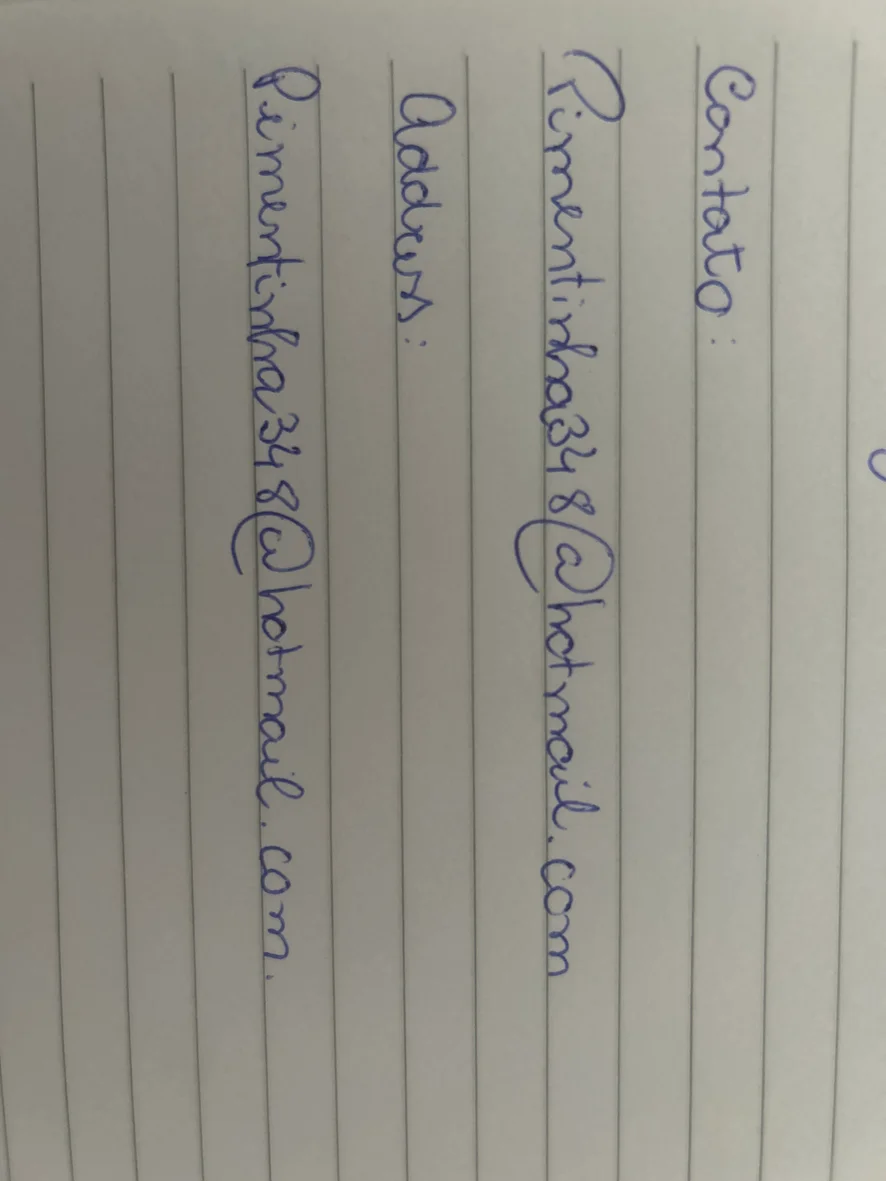 Contato:
Pimentinha348@hotmail.com
Address:
Pimentinha348@hotmail.com.